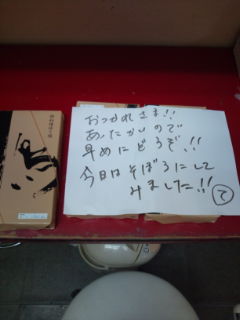 おつかれさま!!
あたたかいので
早めにどうぞ!!
今日はそぼろにして
みました!!
て